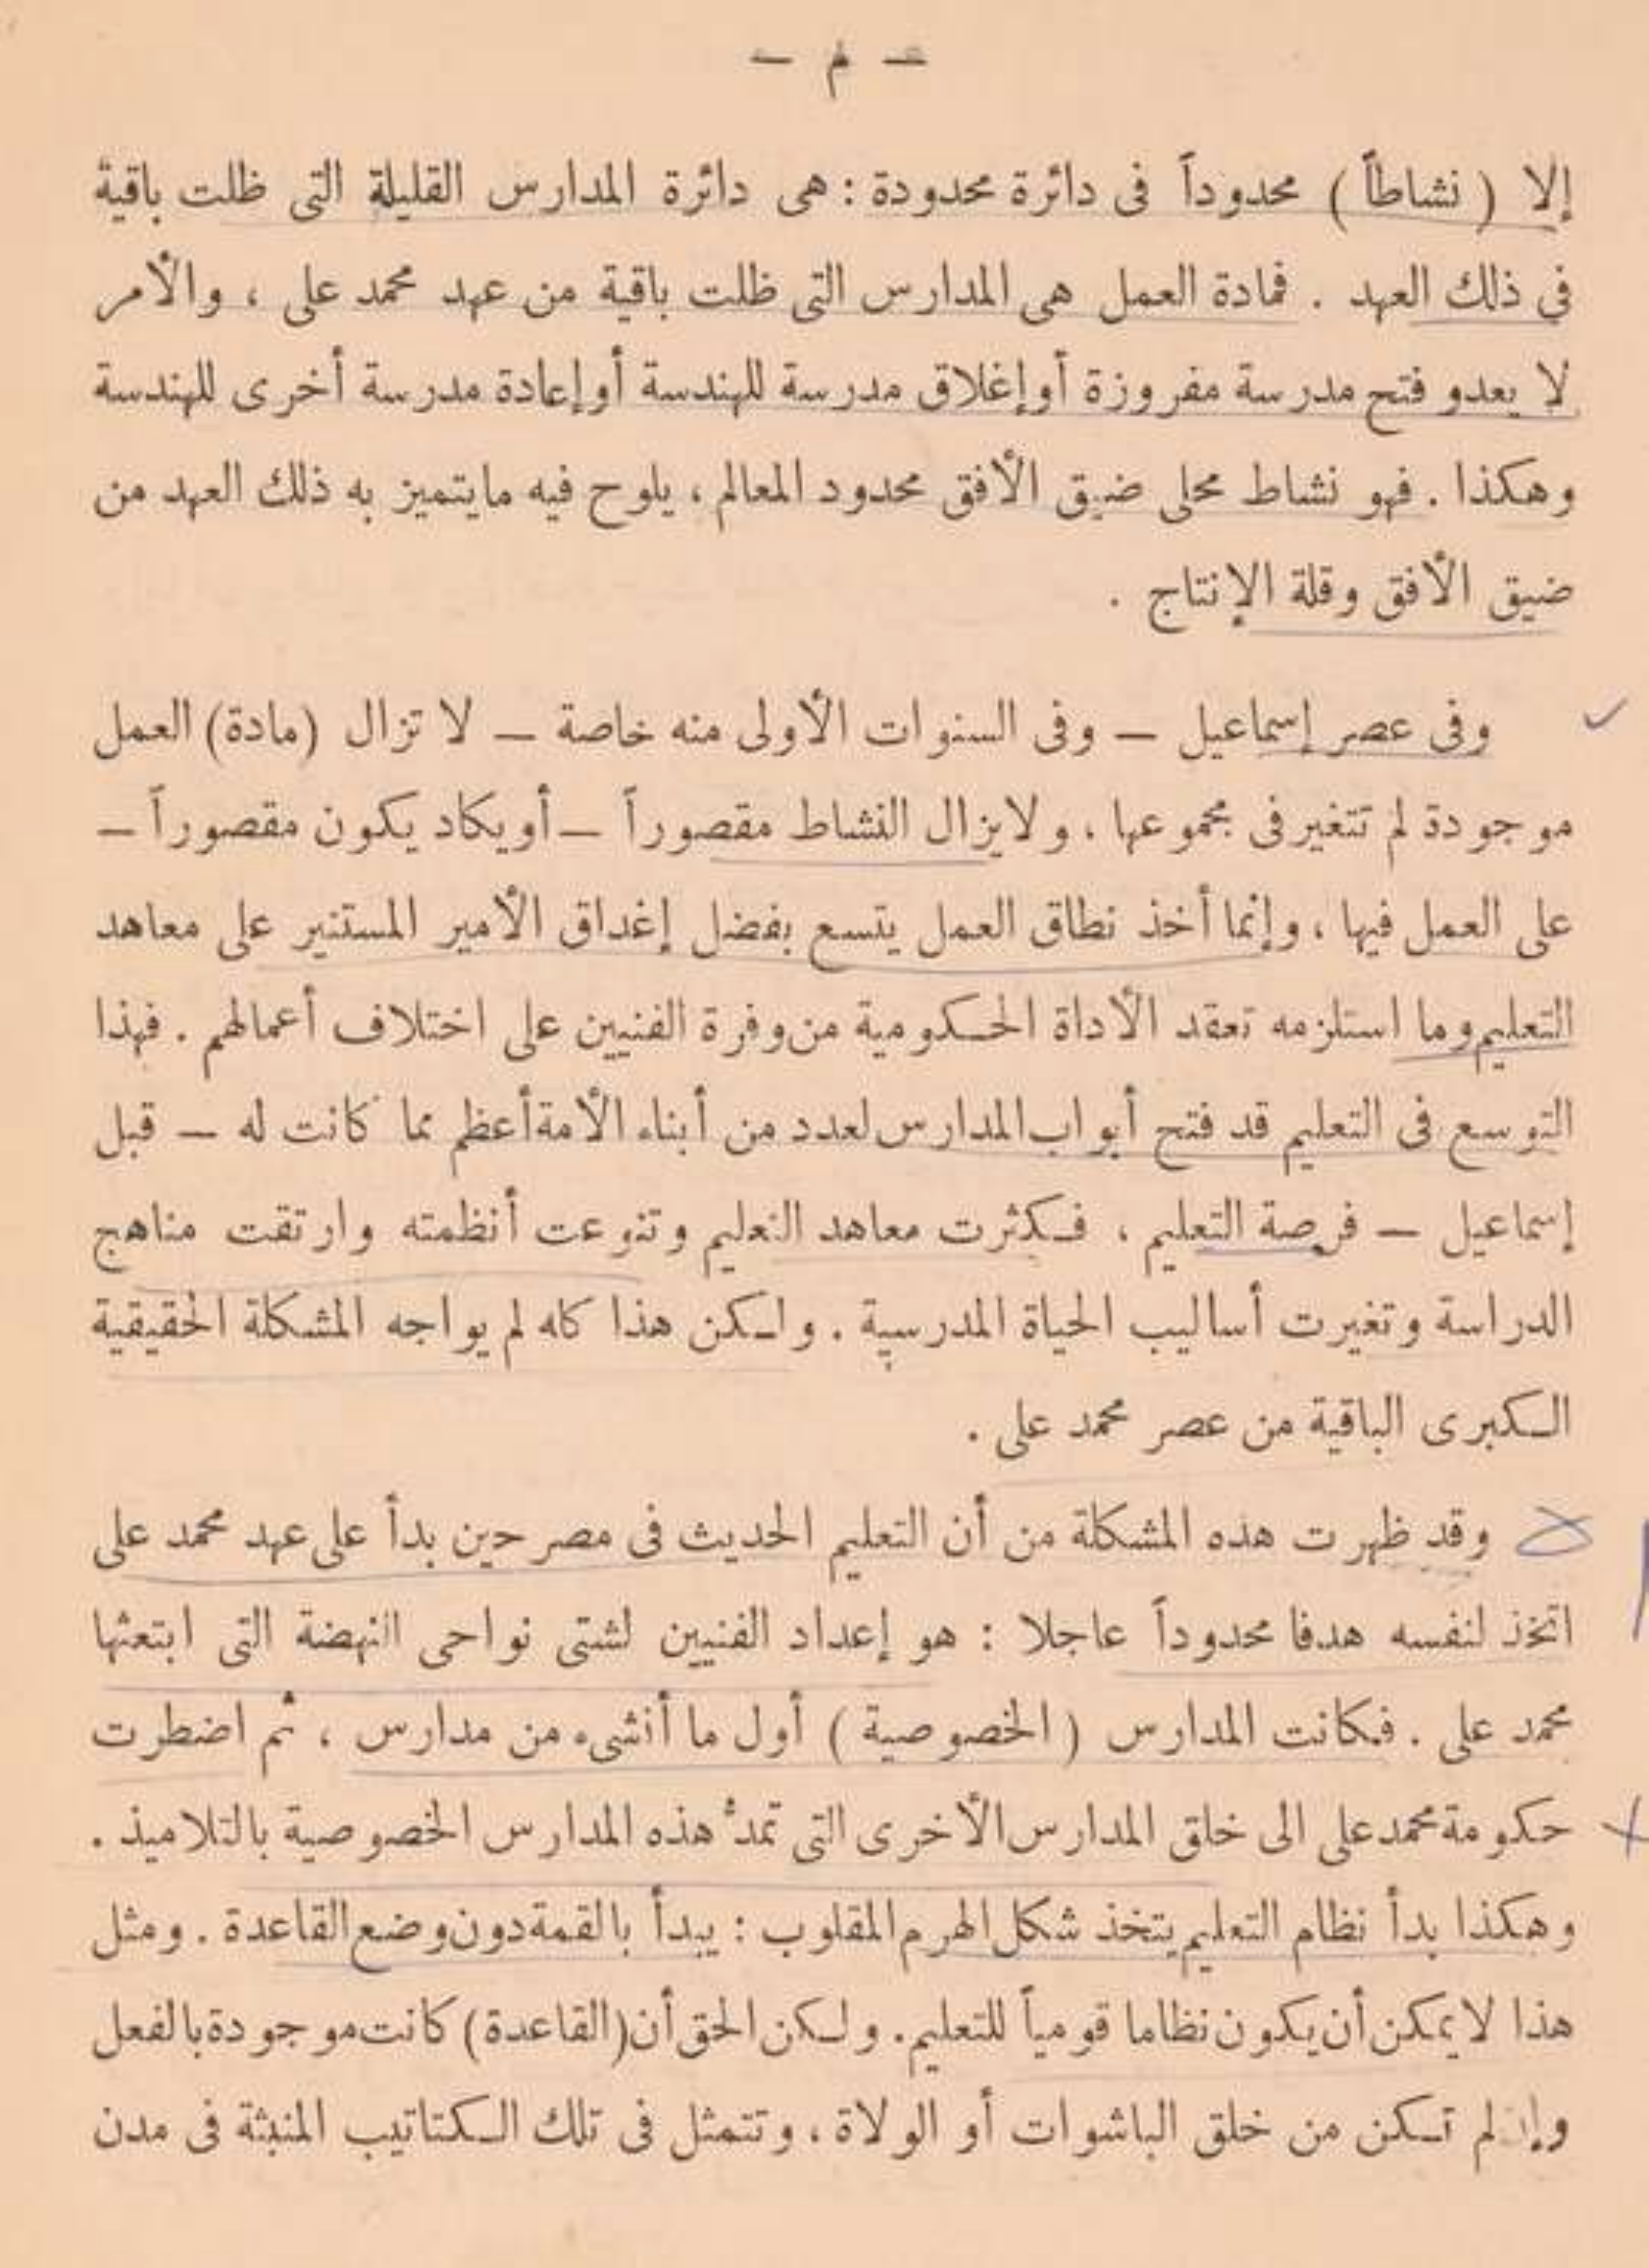 — م —
إلا ( نشاطاً ) محدوداً فى دائرة محدودة : هى دائرة المدارس القليلة التى ظلت باقية
فى ذلك العهد . فمادة العمل هى المدارس التى ظلت باقية من عهد محمد على ، والأمر
لا يعدو فتح مدرسة مفروزة أو إغلاق مدرسة للهندسة أو إعادة مدرسة أخرى للهندسة
وهكذا . فهو نشاط محلى ضيق الأفق محدود المعالم ، يلوح فيه مايتميز به ذلك العهد من
ضيق الأفق وقلة الإنتاج .
وفى عصر إسماعيل — وفى السنوات الأولى منه خاصة — لا تزال (مادة) العمل
موجودة لم تتغير فى مجموعها . ولا يزال النشاط مقصوراً — أو يكاد يكون مقصوراً —
على العمل فيها ، وإنما أخذ نطاق العمل يتسع بفضل إغداق الأمير المستنير على معاهد
التعليم وما استلزمه تعقد الأداة الحكومية من وفرة الفنيين على اختلاف أعمالهم . فهذا
التوسع فى التعليم قد فتح أبواب المدارس لعدد من أبناء الأمة أعظم مما كانت له — قبل
إسماعيل — فرصة التعليم ، فكثرت معاهد التعليم وتنوعت أنظمته وارتقت مناهج
الدراسة وتغيرت أساليب الحياة المدرسية . ولكن هذا كله لم يواجه المشكلة الحقيقية
الكبرى الباقية من عصر محمد على .
وقد ظهرت هذه المشكلة من أن التعليم الحديث فى مصر حين بدأ على عهد محمد على
اتخذ لنفسه هدفا محدوداً عاجلا : هو إعداد الفنيين لشتى نواحى النهضة التى ابتعثها
محمد على . فكانت المدارس ( الخصوصية ) أول ما أنشىء من مدارس ، ثم اضطرت
حكومة محمد على الى خلق المدارس الأخرى التى تمدُّ هذه المدارس الخصوصية بالتلاميذ .
وهكذا بدأ نظام التعليم يتخذ شكل الهرم المقلوب : يبدأ بالقمة دون وضع القاعدة . ومثل
هذا لا يمكن أن يكون نظاما قومياً للتعليم . ولكن الحق أن (القاعدة) كانت موجودة بالفعل
وإن لم تكن من خلق الباشوات أو الولاة ، وتتمثل فى تلك الكتاتيب المنبثة فى مدن